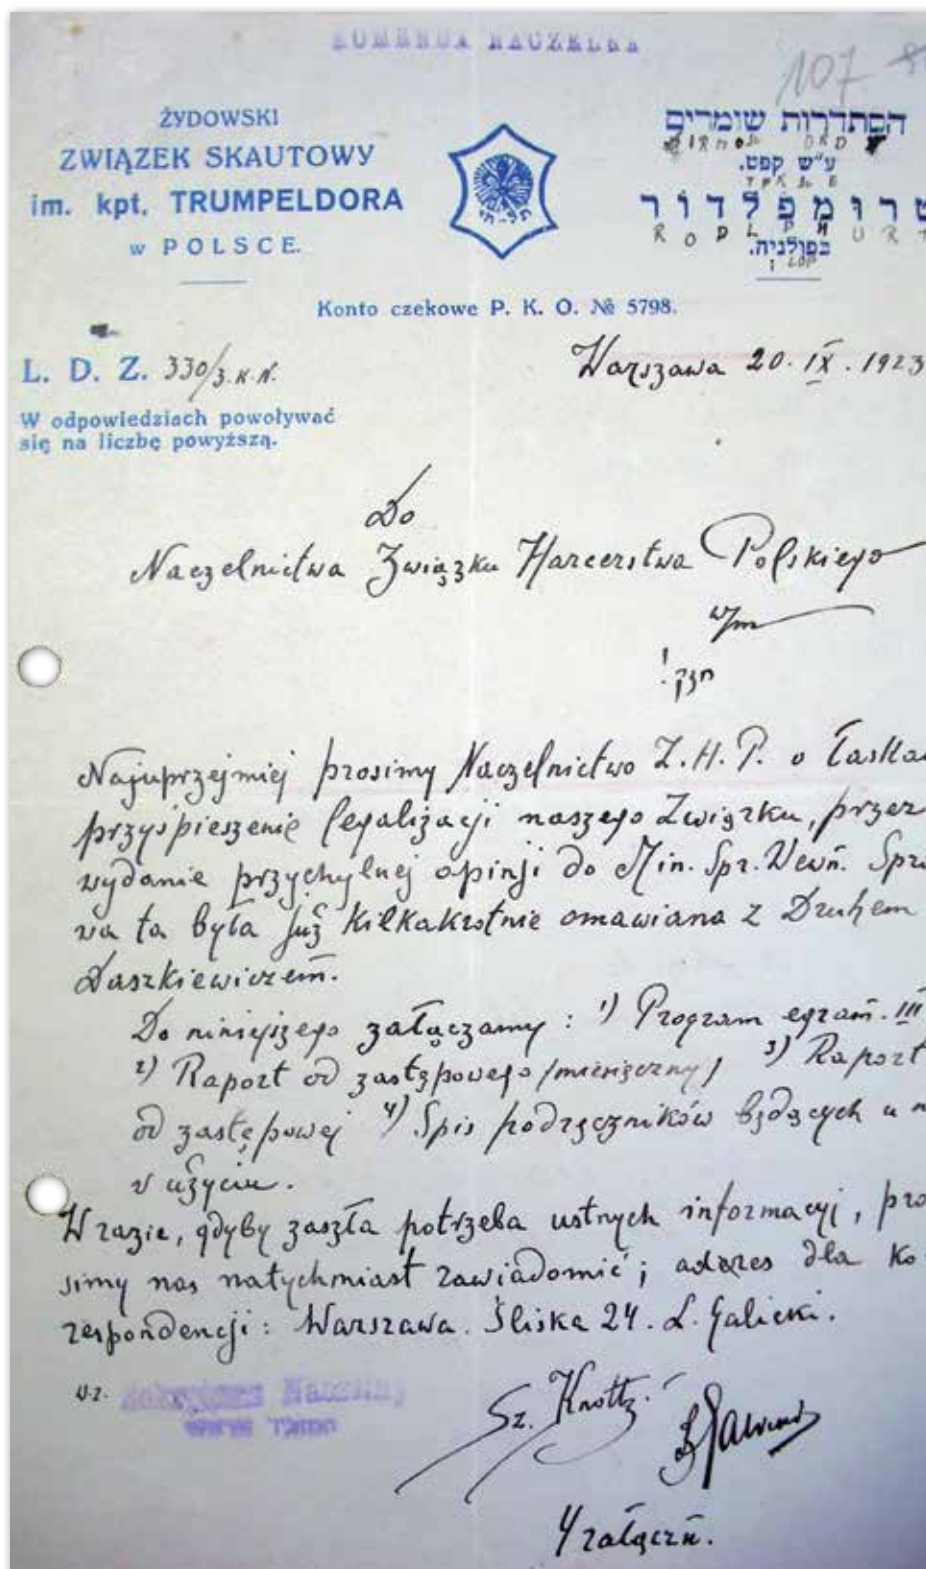 KOMENDA NACZELNA
107
ŻYDOWSKI
ZWIĄZEK SKAUTOWY
im. kpt. TRUMPELDORA
w POLSCE.
תל-חי
הסתדרות שומרים
ע"ש קפט.
טרומפלדור
R O D L P M U R T
בפולניה.
Konto czekowe P. K. O. № 5798.
L. D. Z. 330/3.K.N.
Warszawa 20. IX. 1923
W odpowiedziach powoływać
się na liczbę powyższą.
Do
Naczelnictwa Związku Harcerstwa Polskiego
w/m
חזק!
Najuprzejmiej prosimy Naczelnictwo Z.H.P. o łaska
przyśpieszenie legalizacji naszego Związku, przez
wydanie przychylnej opinji do Min. Spr. Wewn. Spra
wa ta była już kilkakrotnie omawiana z Druhem
Daszkiewiczem.
Do niniejszego załączamy: 1) Program egzam. III
2) Raport od zastępowego /miesięczny/ 3) Raport
od zastępowej 4) Spis podręczników będących u n
w użyciu.
W razie, gdyby zaszła potrzeba ustnych informacyj, pro
simy nas natychmiast zawiadomić; adres dla ko
respondencji: Warszawa. Śliska 24. L. Galicki.
w.z. Sekretarz Naczelny
Sz.
4 załączn.